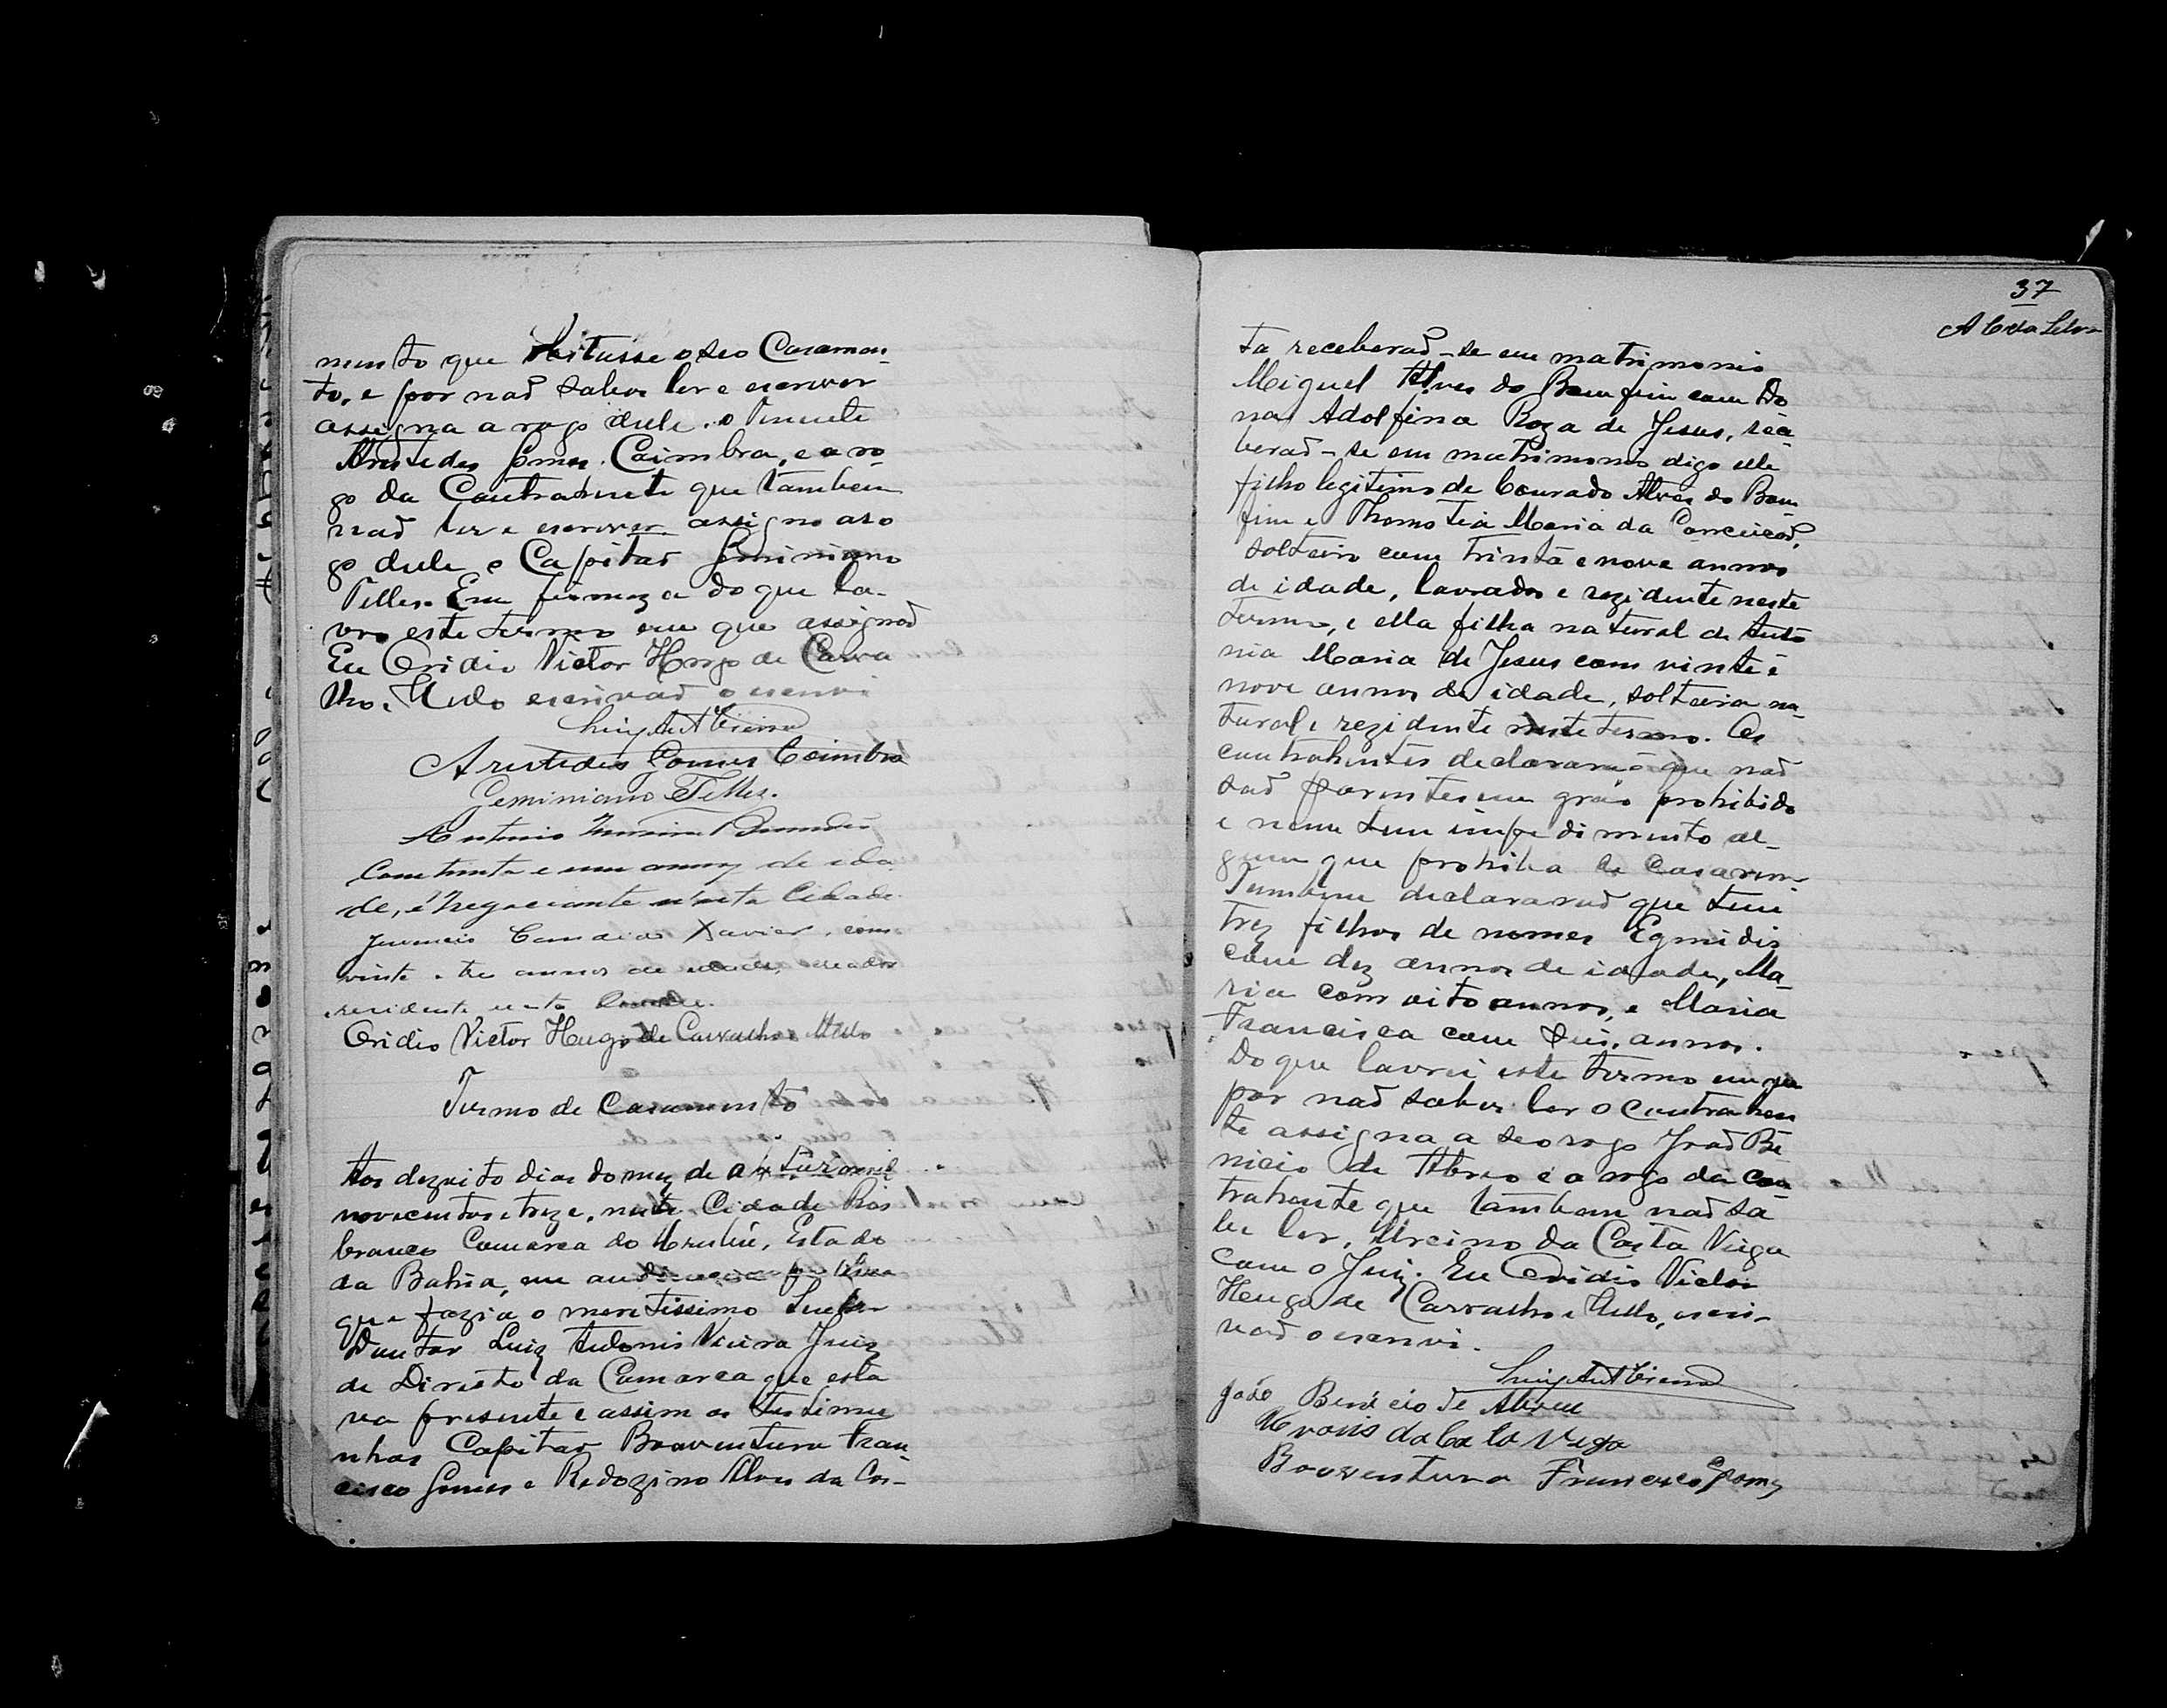 mento que obstasse o seo Casamen-
to, e por naõ saber ler e escrever
assigna a rogo delle o Tenente
Aristides Gomes Coimbra, e a ro-
go da Contrahente que tambem
naõ ler e escrever assigno a ro
go delle o Capitaõ Geminiano
Telles. Em firmeza do que la-
vro este termo em que assignaõ
Eu Ovidio Victor Hugo de Carva
lho e Mello escrivaõ o escrevi
Luiz Ant Vieira
Aristides Gomes Coimbra
Geminiano Telles.
Antonio
Com trinta e um annos de ida
de, é Negociante n'esta Cidade.
Candido Xavier, com
vinte e tres annos de edade,
residente nesta
Ovidio Victor Hugo de Carvalho e Mello
Termo de Casamento
Aos dezoito dias do mez de mil
novecentos e treze, nesta Cidade Rio
branco Comarca do Urubú, Estado
da Bahia, em audiencia publica
que fazia o meretissimo Senhor
Doutor Luiz Antonio Vieira Juiz
de Direito da Comarca que esta
va presente e assim as testimu
nhas Capitaõ Boaventura Fran
cisco Gomes e Redozino Alves da Cos-
37
A C da Silva
ta receberaõ-se em matrimonio
Miguel Alves do Bomfim com Do
na Adolfina Roza de Jesus, rece
beraõ-se em matrimonio digo elle
filho legitimo de Conrado Alves do Bom
fim e Maria da Conceicaõ,
solteiro com trinta e nove annos
de idade, lavrador e rezidente neste
termo, e ella filha natural de Anto
nia Maria de Jesus com vinte e
nove annos de idade, solteira na-
tural e rezidente neste termo. Os
contrahentes declararaõ que naõ
saõ parentes em gráo prohibido
e nem tem impedimento al-
gum que prohiba de Casarem.
Tambem declararaõ que tem
trez filhos de nomes Egmidio
com dez annos de idade, Ma-
ria com oito annos, e Maria
Francisca com seis annos.
Do que lavrei este termo em que
por naõ saber ler o Contrahen
te assigna a seo rogo Joaõ Be
nicio de Abreo e a rogo da con
trahente que tambem naõ sa
be ler, Urcino da Costa Veiga
Com o Juiz. Eu Ovidio Victor
Hugo de Carvalho e Mello, escri-
vaõ o escrevi.
Luiz Ant Vieira
João Benicio de Abreu
da Costa Vega
Boaventura Francisco Gomes